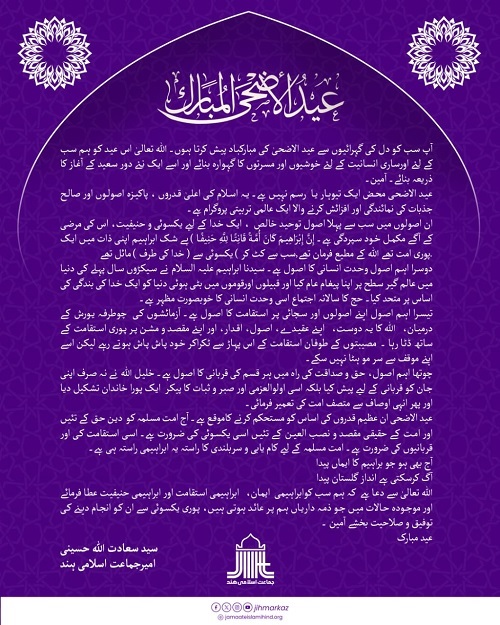 عید الاضحیٰ المبارک
آپ سب کو دل کی گہرائیوں سے عید الاضحیٰ کی مبارکباد پیش کرتا ہوں۔ اللہ تعالیٰ اس عید کو ہم سب
کے لئے اورساری انسانیت کے لئے خوشیوں اور مسرتوں کا گہوارہ بنائے اور اسے ایک نئے دور سعید کے آغاز کا
ذریعہ بنائے۔ آمین۔
عید الاضحی محض ایک تیوہار یا رسم نہیں ہے۔ یہ اسلام کی اعلیٰ قدروں ، پاکیزہ اصولوں اور صالح
جذبات کی نمائندگی اور افزائش کرنے والا ایک عالمی تربیتی پروگرام ہے۔
ان اصولوں میں سب سے پہلا اصول توحید خالص ، ایک خدا کے لیے یکسوئی و حنیفیت، اس کی مرضی
کے آگے مکمل خود سپردگی ہے۔ إِنَّ إِبْرَاهِيمَ كَانَ أُمَّةً قَانِتًا لِلَّهِ حَنِيفًا ) بے شک ابراہیم اپنی ذات میں ایک
پوری امت تھے اللہ کے مطیع فرمان تھے،سب سے کٹ کر ) یکسوئی سے ( خدا کی طرف) مائل تھے.
دوسرا اہم اصول وحدت انسانی کا اصول ہے۔ سیدنا ابراہیم علیہ السلام نے سیکڑوں سال پہلے کی دنیا
میں عالم گیر سطح پر اپنا پیغام عام کیا اور قبیلوں اورقوموں میں بٹی ہوئی دنیا کو ایک خدا کی بندگی کی
اساس پر متحد کیا۔ حج کا سالانہ اجتماع اسی وحدت انسانی کا خوبصورت مظہر ہے۔
تیسرا اہم اصول اپنے اصولوں اور سچائی پر استقامت کا اصول ہے۔ آزمائشوں کی چوطرفہ یورش کے
درمیان، اللہ کا یہ دوست، اپنے عقیدے، اصول، اقدار، اور اپنے مقصد و مشن پر پوری استقامت کے
ساتھ ڈٹا رہا ۔ مصیبتوں کے طوفان استقامت کے اس پہاڑ سے ٹکراکر خود پاش پاش ہوتے رہے لیکن اسے
اپنے موقف سے سر مو ہٹا نہیں سکے۔
چوتھا اہم اصول، حق و صداقت کی راہ میں ہر قسم کی قربانی کا اصول ہے۔ خلیل اللہ نے نہ صرف اپنی
جان کو قربانی کے لیے پیش کیا بلکہ اسی اولوالعزمی اور صبر و ثبات کا پیکر ایک پورا خاندان تشکیل دیا
اور پھر انہی اوصاف سے متصف امت کی تعمیر فرمائی۔
عید الاضحی ان عظیم قدروں کی اساس کو مستحکم کرنے کاموقع ہے۔ آج امت مسلمہ کو دین حق کے تئیں
اور امت کے حقیقی مقصد و نصب العین کے تئیں اسی یکسوئی کی ضرورت ہے۔ اسی استقامت کی اور
قربانیوں کی ضرورت ہے۔ امت مسلمہ کے لیے کام یابی و سربلندی کا راستہ یہ ابراہیمی راستہ ہی ہے۔
آج بھی ہو جو براہیم کا ایماں پیدا
آگ کرسکتی ہے انداز گلستاں پیدا
اللہ تعالیٰ سے دعا ہے کہ ہم سب کوابراہیمی ایمان، ابراہیمی استقامت اور ابراہیمی حنیفیت عطا فرمائے
اور موجودہ حالات میں جو ذمہ داریاں ہم پر عائد ہوتی ہیں، پوری یکسوئی سے ان کو انجام دینے کی
توفیق و صلاحیت بخشے آمین ۔
عید مبارک
سید سعادت اللہ حسینی
امیرجماعت اسلامی ہند
جماعت اسلامی ہند
jihmarkaz
jamaateislamihind.org